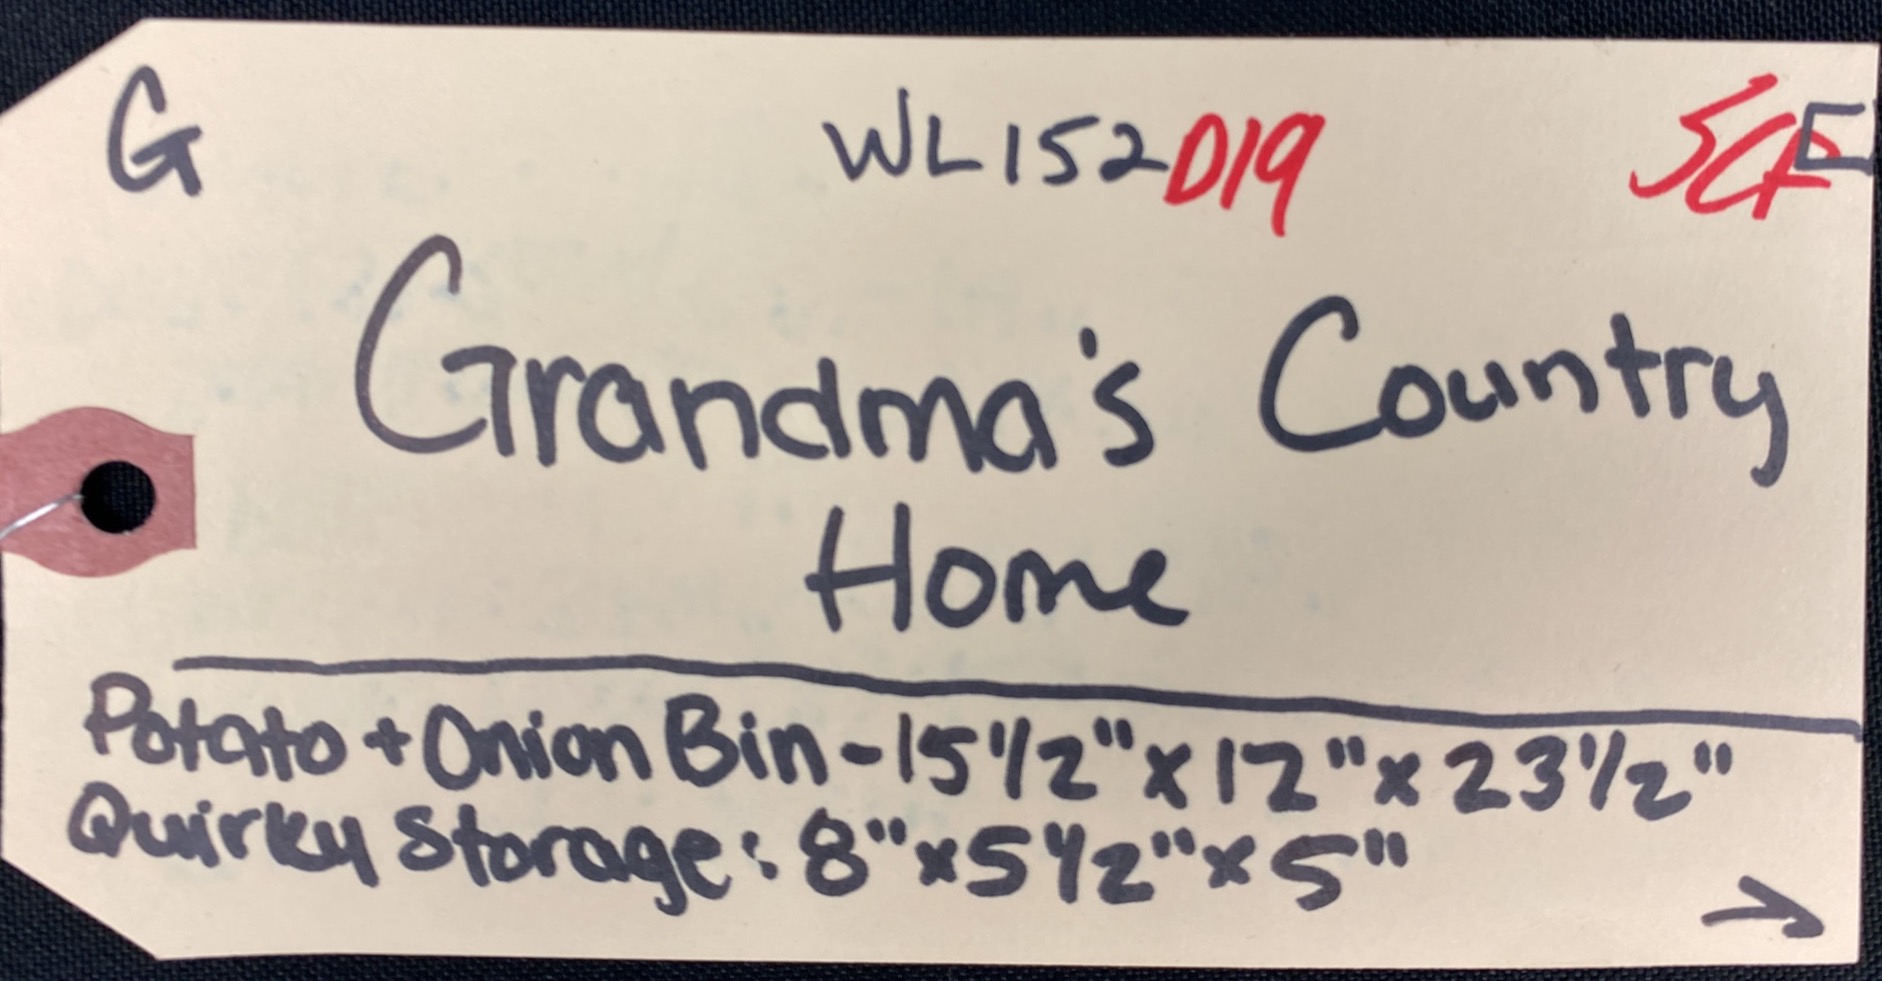 G WL152D19 SCF
Grandma's Country
Home
Potato + Onion Bin - 15 1/2" x 12" x 23 1/2"
Quirky Storage: 8" x 5 1/2" x 5"
→